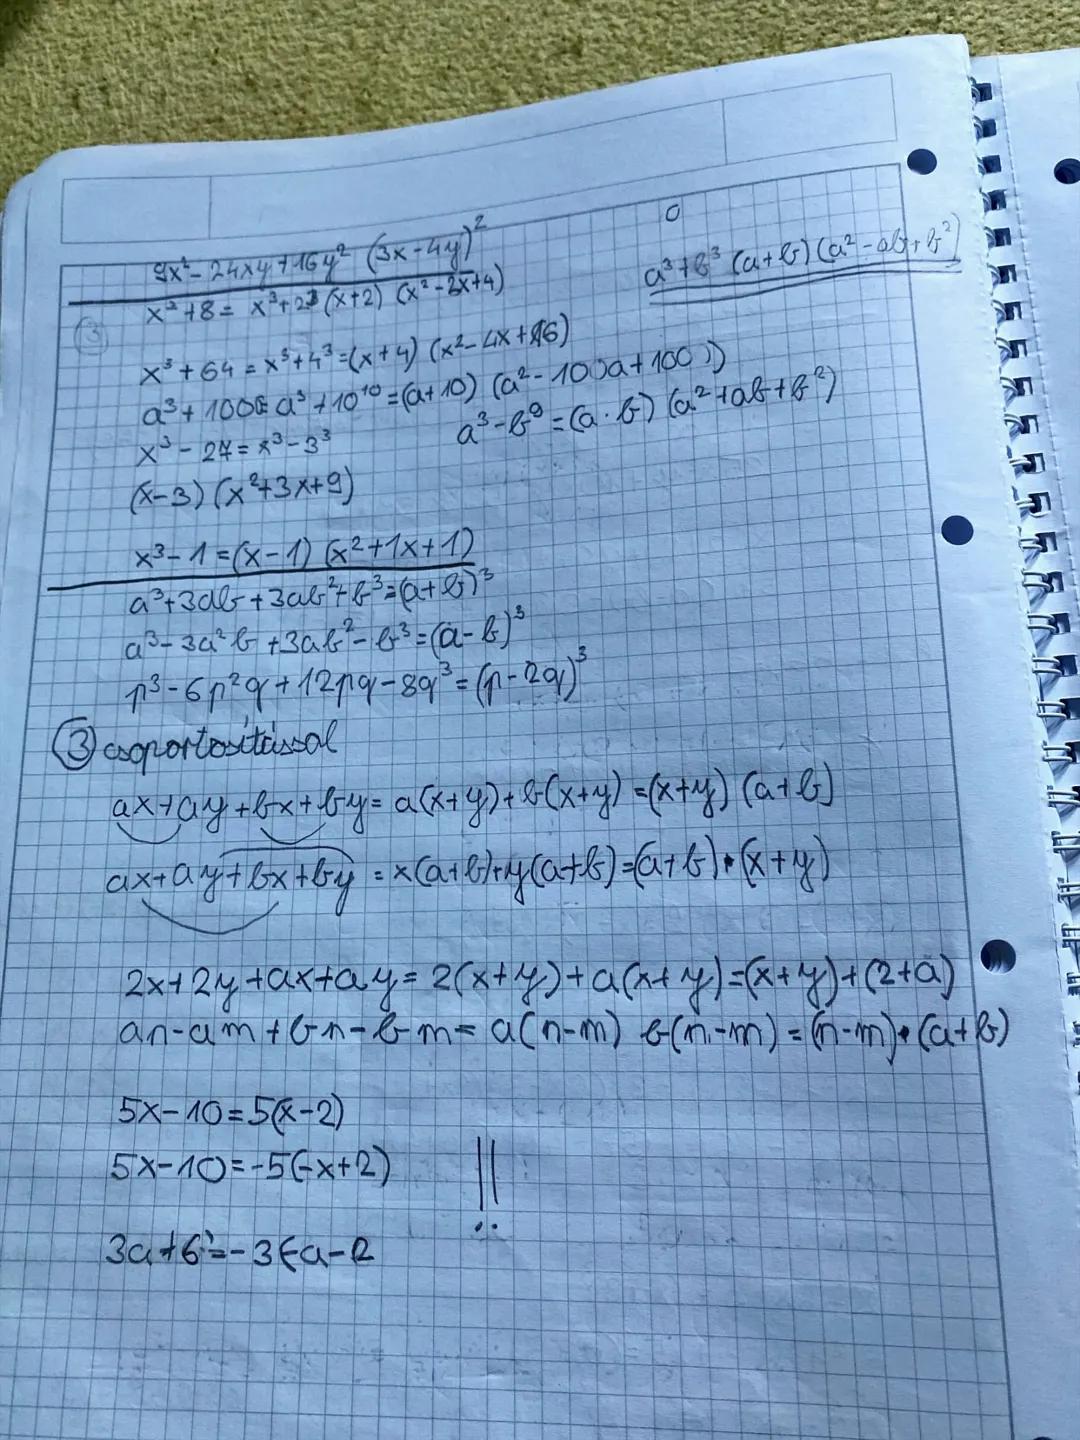 9x² - 24xy + 16y² (3x - 4y)²
a³ + b³ (a+b) (a² - ab + b²)
x³ + 8 = x³ + 2³ (x+2) (x² - 2x + 4)
3
x³ + 64 = x³ + 4³ = (x+4) (x² - 4x + 16)
a³ + 1000 = a³ + 10¹⁰ = (a+10) (a² - 100a + 100)
x³ - 27 = x³ - 3³
a³ - b⁹ = (a · b) (a² + ab + b²)
(x - 3) (x² + 3x + 9)
x³ - 1 = (x - 1) (x² + 1x + 1)
a³ + 3ab + 3ab² + b³ = (a + b)³
a³ - 3a²b + 3ab² - b³ = (a - b)³
p³ - 6p²q + 12pq - 8q³ = (p - 2q)³
③ csoportosítással
ax + ay + bx + by = a(x+y) + b(x+y) = (x+y) (a+b)
ax + ay + bx + by = x(a+b) + y(a+b) = (a+b) · (x+y)
2x + 2y + ax + ay = 2(x+y) + a(x+y) = (x+y) + (2+a)
an - am + bn - bm = a(n-m) b(n-m) = (n-m) · (a+b)
5x - 10 = 5(x - 2)
5x - 10 = -5(-x + 2) !!
3a + 6 = -3(-a - 2